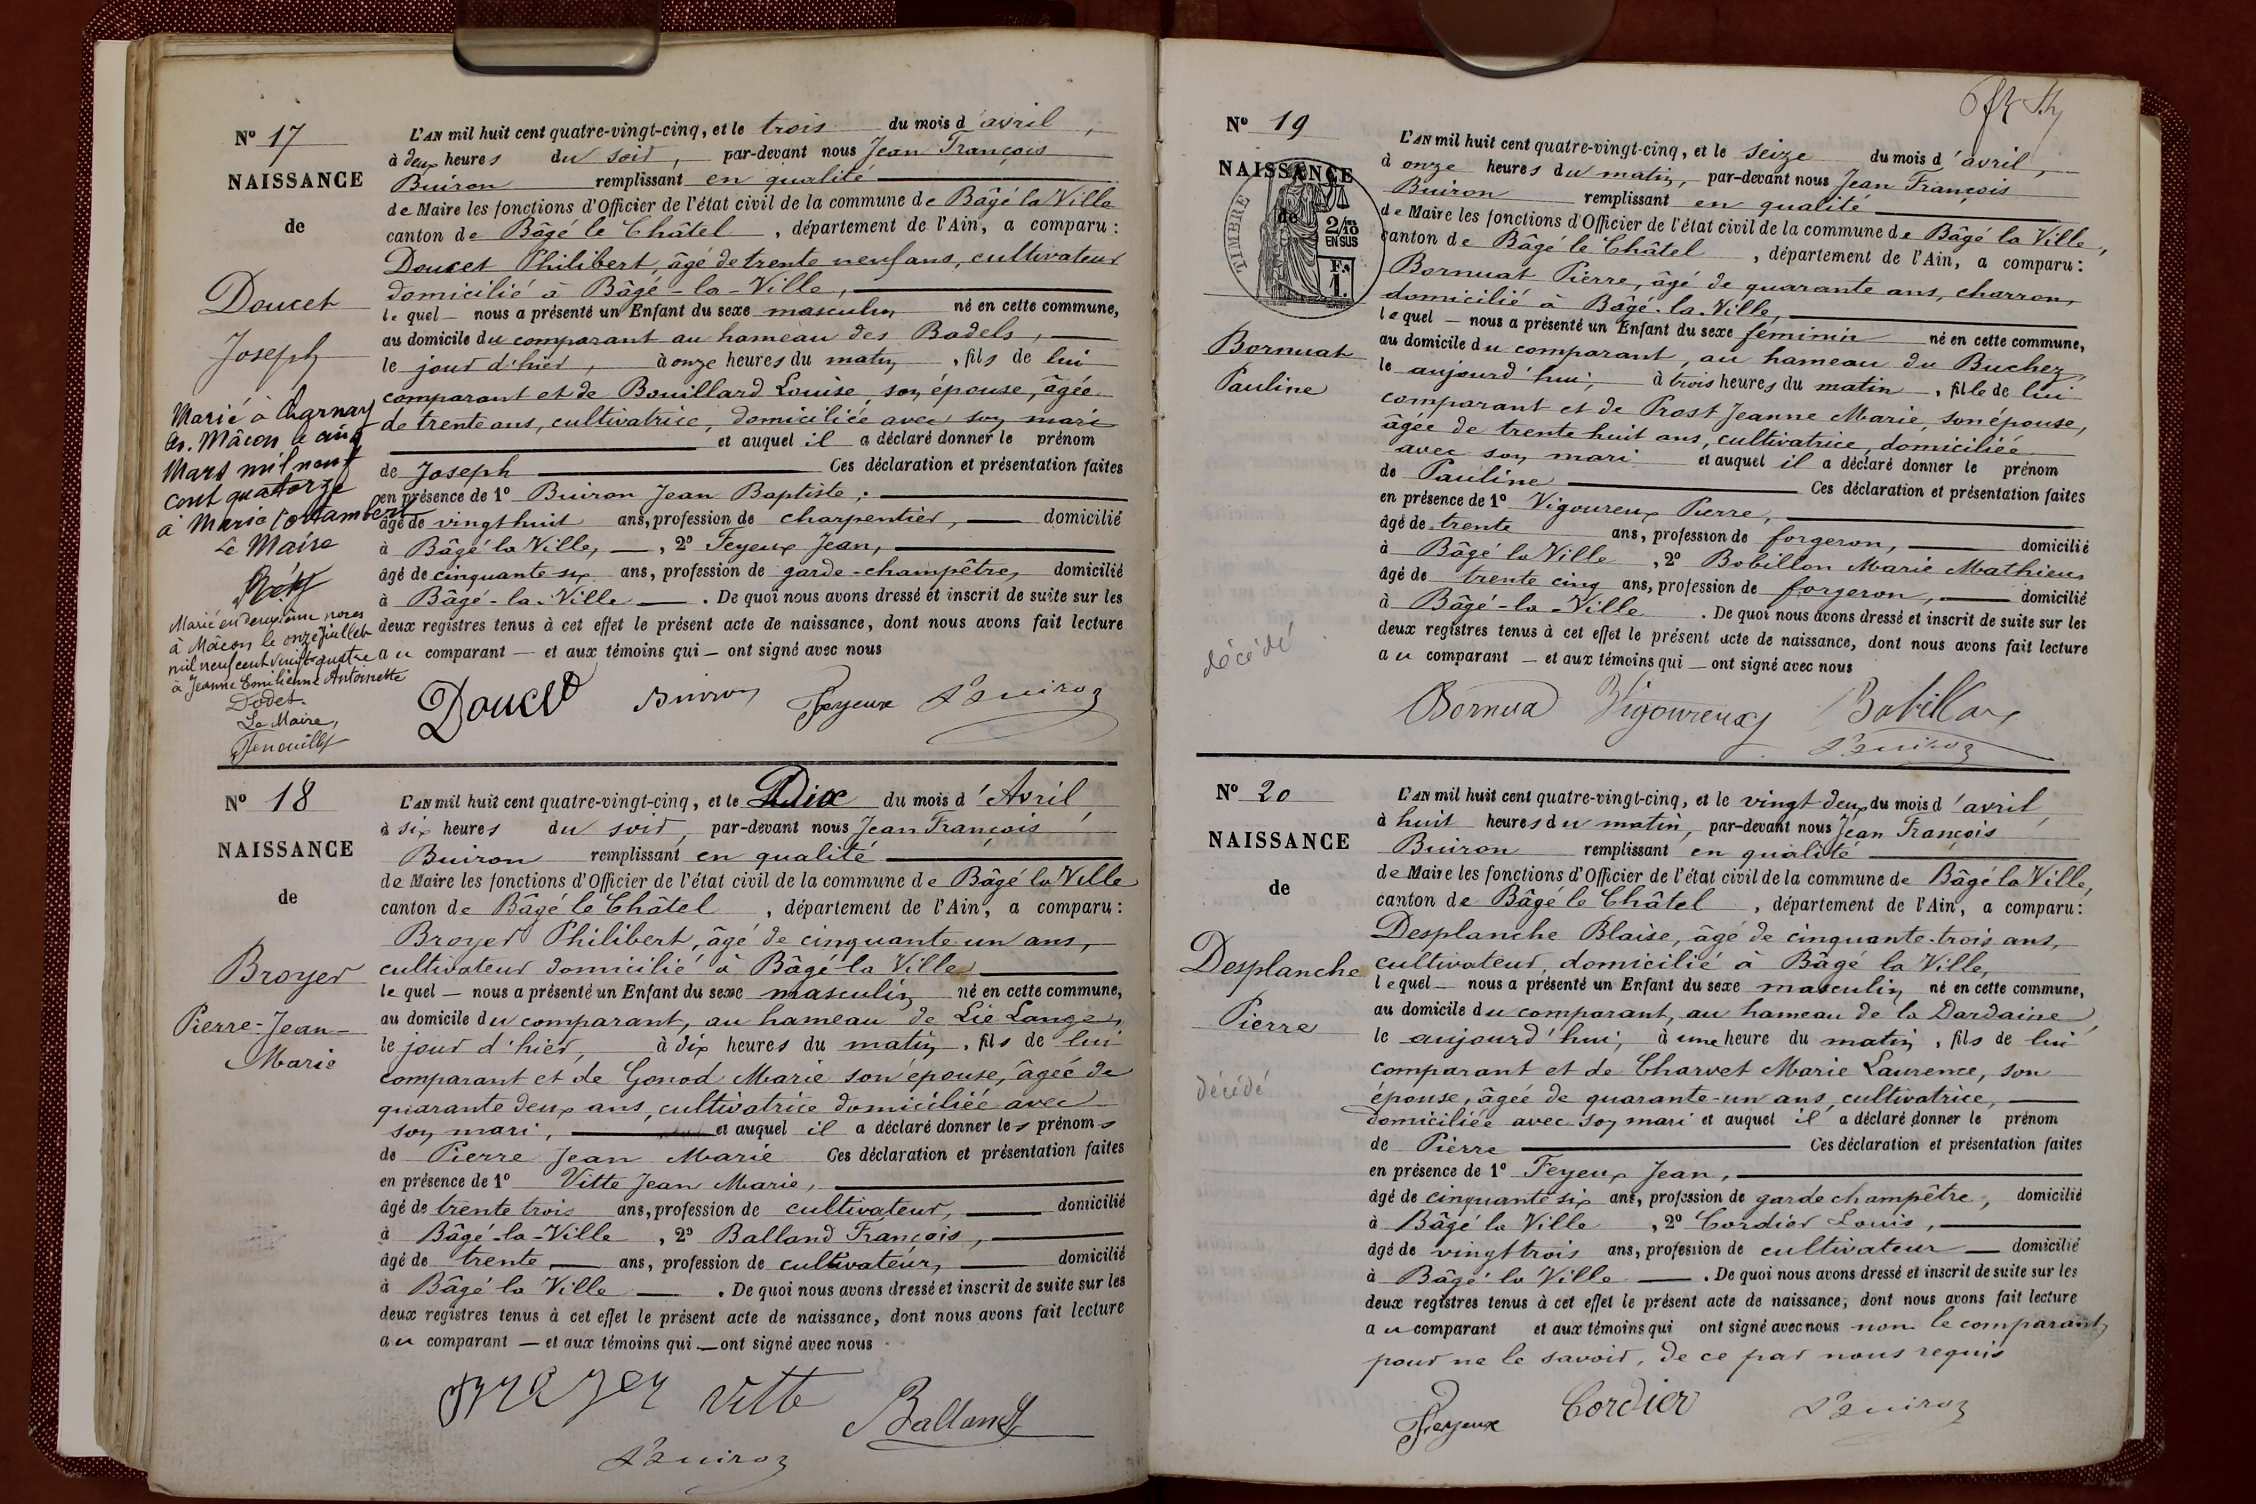 Nº 17
NAISSANCE
de
Doucet
Joseph
Marié à Charnay
les. Mâcon le cinq
Mars mil neuf
cent quatorze
à Maria Contambert
Le Maire
Marié en deuxième noces
à Mâcon le onze juillet
mil neuf cent vingt quatre
à Jeanne Emilienne Antoinette
Dodet.
Le Maire,
L'AN mil huit cent quatre-vingt-cinq, et le trois du mois d'avril,
à deux heures du soir, par-devant nous Jean François
Buiron remplissant en qualité
de Maire les fonctions d'Officier de l'état civil de la commune de Bâgé la Ville
canton de Bâgé le Châtel, département de l'Ain, a comparu :
Doucet Philibert, âgé de trente neuf ans, cultivateur
domicilié à Bâgé-la-Ville,
lequel — nous a présenté un Enfant du sexe masculin né en cette commune,
au domicile du comparant au hameau des Badels,
le jour d'hier, à onze heures du matin, fils de lui
comparant et de Bouillard Louise, son épouse, âgée
de trente ans, cultivatrice, domiciliée avec son mari
et auquel il a déclaré donner le prénom
de Joseph Ces déclaration et présentation faites
en présence de 1º Buiron Jean Baptiste,
âgé de vingt huit ans, profession de charpentier, domicilié
à Bâgé la Ville, —, 2º Feyeux Jean,
âgé de cinquante six ans, profession de garde-champêtre, domicilié
à Bâgé-la-Ville —. De quoi nous avons dressé et inscrit de suite sur les
deux registres tenus à cet effet le présent acte de naissance, dont nous avons fait lecture
au comparant — et aux témoins qui — ont signé avec nous
Doucet Buiron Feyeux Buiron
Nº 18
NAISSANCE
de
Broyer
Pierre-Jean-
Marie
L'AN mil huit cent quatre-vingt-cinq, et le Dix du mois d'Avril,
à six heures du soir, par-devant nous Jean François
Buiron remplissant en qualité
de Maire les fonctions d'Officier de l'état civil de la commune de Bâgé la Ville
canton de Bâgé le Châtel, département de l'Ain, a comparu :
Broyer Philibert, âgé de cinquante un ans,
cultivateur domicilié à Bâgé-la Ville
lequel — nous a présenté un Enfant du sexe masculin né en cette commune,
au domicile du comparant, au hameau de Lie Lange,
le jour d'hier, à dix heures du matin, fils de lui
comparant et de Gonod Marie son épouse, âgée de
quarante deux ans, cultivatrice domiciliée avec
son mari, et auquel il a déclaré donner les prénoms
de Pierre Jean Marie Ces déclaration et présentation faites
en présence de 1º Vitte Jean Marie,
âgé de trente trois ans, profession de cultivateur, domicilié
à Bâgé-la-Ville, 2º Balland François,
âgé de trente ans, profession de cultivateur, domicilié
à Bâgé la Ville —. De quoi nous avons dressé et inscrit de suite sur les
deux registres tenus à cet effet le présent acte de naissance, dont nous avons fait lecture
au comparant — et aux témoins qui — ont signé avec nous
Broyer Vitte Balland
Buiron
Nº 19
NAISSANCE
de
TIMBRE
2/10
EN SUS
Fc
1.
Bornuat
Pauline
décédé
L'AN mil huit cent quatre-vingt-cinq, et le seize du mois d'avril,
à onze heures du matin, par-devant nous Jean François
Buiron remplissant en qualité
de Maire les fonctions d'Officier de l'état civil de la commune de Bâgé la Ville,
canton de Bâgé le Châtel, département de l'Ain, a comparu :
Bornuat Pierre, âgé de quarante ans, charron,
domicilié à Bâgé-la-Ville,
lequel — nous a présenté un Enfant du sexe féminin né en cette commune,
au domicile du comparant, au hameau du Buchez
le aujourd'hui, à trois heures du matin, fille de lui
comparant et de Prost Jeanne Marie, son épouse,
âgée de trente huit ans, cultivatrice, domiciliée
avec son mari et auquel il a déclaré donner le prénom
de Pauline Ces déclaration et présentation faites
en présence de 1º Vigoureux Pierre,
âgé de trente ans, profession de forgeron, domicilié
à Bâgé la Ville, 2º Bobillon Marie Mathieu
âgé de trente cinq ans, profession de forgeron, domicilié
à Bâgé-la-Ville. De quoi nous avons dressé et inscrit de suite sur les
deux registres tenus à cet effet le présent acte de naissance, dont nous avons fait lecture
au comparant — et aux témoins qui — ont signé avec nous
Bornua Vigoureux Bobillon
Buiron
Nº 20
NAISSANCE
de
Desplanche
Pierre
décédé
L'AN mil huit cent quatre-vingt-cinq, et le vingt deux du mois d'avril,
à huit heures du matin, par-devant nous Jean François
Buiron remplissant en qualité
de Maire les fonctions d'Officier de l'état civil de la commune de Bâgé la Ville,
canton de Bâgé le Châtel, département de l'Ain, a comparu :
Desplanche Blaise, âgé de cinquante-trois ans,
cultivateur, domicilié à Bâgé la Ville,
lequel — nous a présenté un Enfant du sexe masculin né en cette commune,
au domicile du comparant, au hameau de la Dardaine,
le aujourd'hui, à une heure du matin, fils de lui
comparant et de Charvet Marie Laurence, son
épouse, âgée de quarante-un ans, cultivatrice,
domiciliée avec son mari et auquel il a déclaré donner le prénom
de Pierre Ces déclaration et présentation faites
en présence de 1º Feyeux Jean,
âgé de cinquante six ans, profession de garde champêtre, domicilié
à Bâgé la Ville, 2º Cordier Louis,
âgé de vingt trois ans, profession de cultivateur — domicilié
à Bâgé la Ville —. De quoi nous avons dressé et inscrit de suite sur les
deux registres tenus à cet effet le présent acte de naissance, dont nous avons fait lecture
au comparant et aux témoins qui ont signé avec nous non le comparant
pour ne le savoir, de ce par nous requis
Feyeux Cordier Buiron